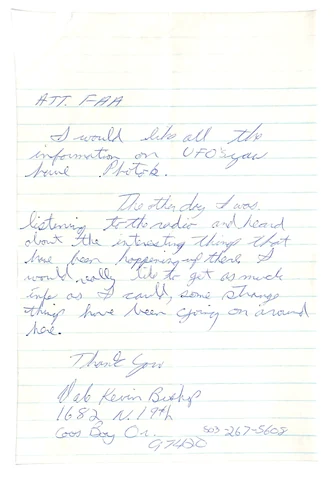 ATT. FAA
I would like all the
information on UFO's you
have Photo's.
The other day I was
listening to the radio and heard
about the interesting things that
have been happening up there. I
would really like to get as much
info as I could, some strange
things have been going on around
here.
Thank You
Kevin Bishop
1682 N. 19th
Coos Bay Or.
503-267-5608
97420